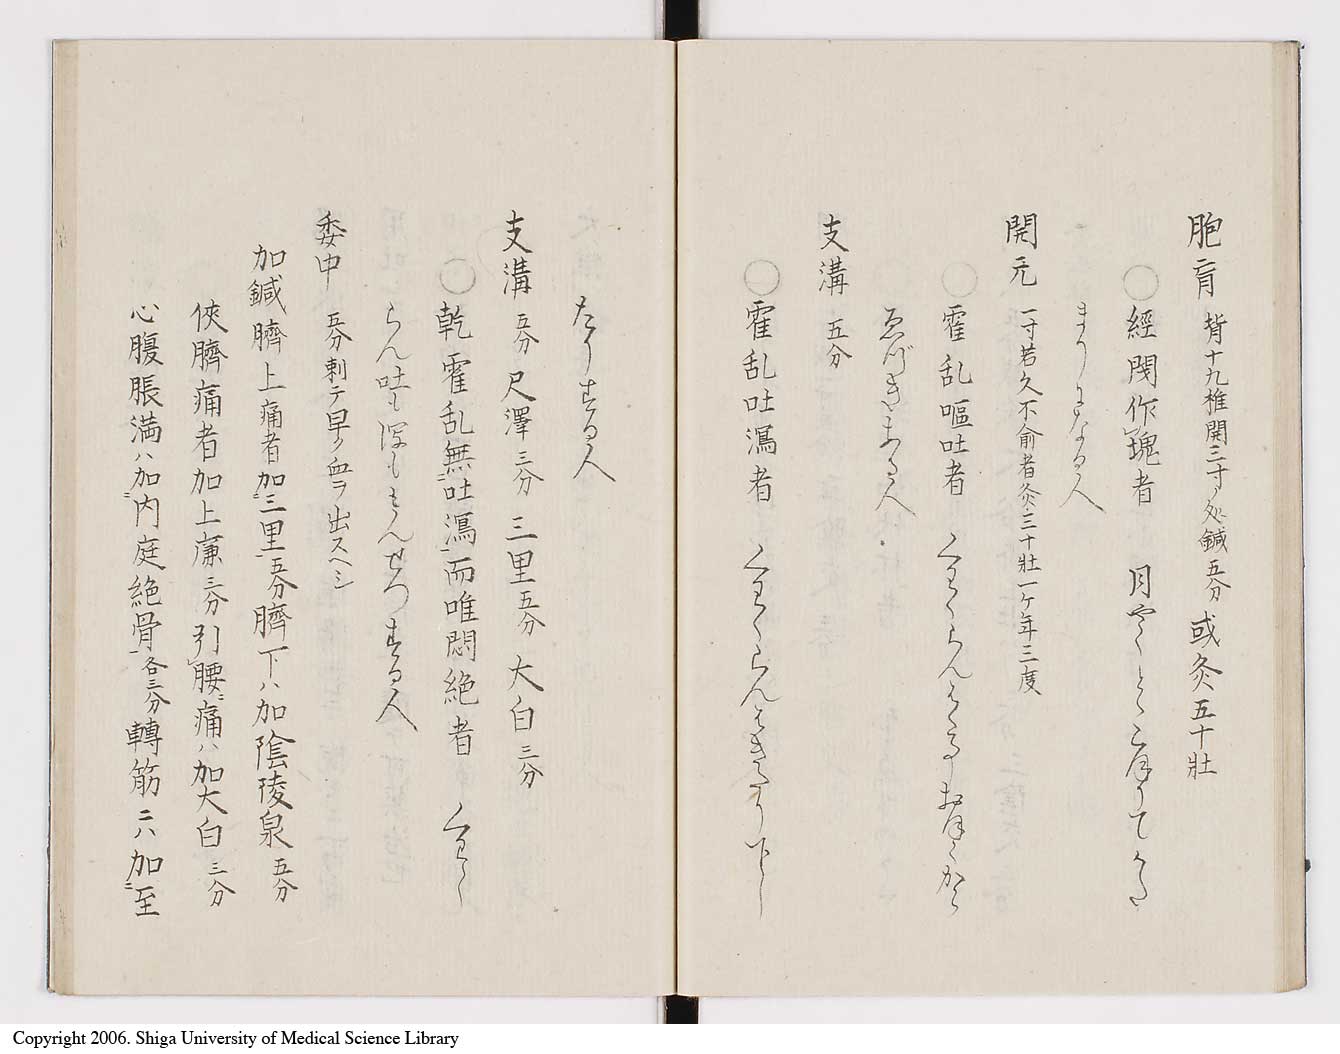 胞肓 背十九椎開三寸ノ処鍼五分 或灸五十壮
〇經閉作塊者 月やくとゝこほりてかた
まりになる人
関元 一寸若久不愈者灸三十壮一ケ年三度
〇霍乱嘔吐者 くわくらんにて
ゑづきある人
支溝 五分
〇霍乱吐瀉者 くわくらんはきたり下し
たりする人
支溝 五分 尺澤 三分 三里 五分 大白 三分
〇乾霍乱無吐瀉而唯悶絶者 くわく
らん吐も深もせずもんぜつする人
委中 五分刺テ早ク血ヲ出スヘシ
加鍼臍上痛者加三里五分臍下ハ加陰陵泉五分
俠臍痛者加上廉三分引腰痛ハ加大白三分
心腹脹満ハ加内庭絶骨各三分轉筋ニハ加至
Copyright 2006. Shiga University of Medical Science Library